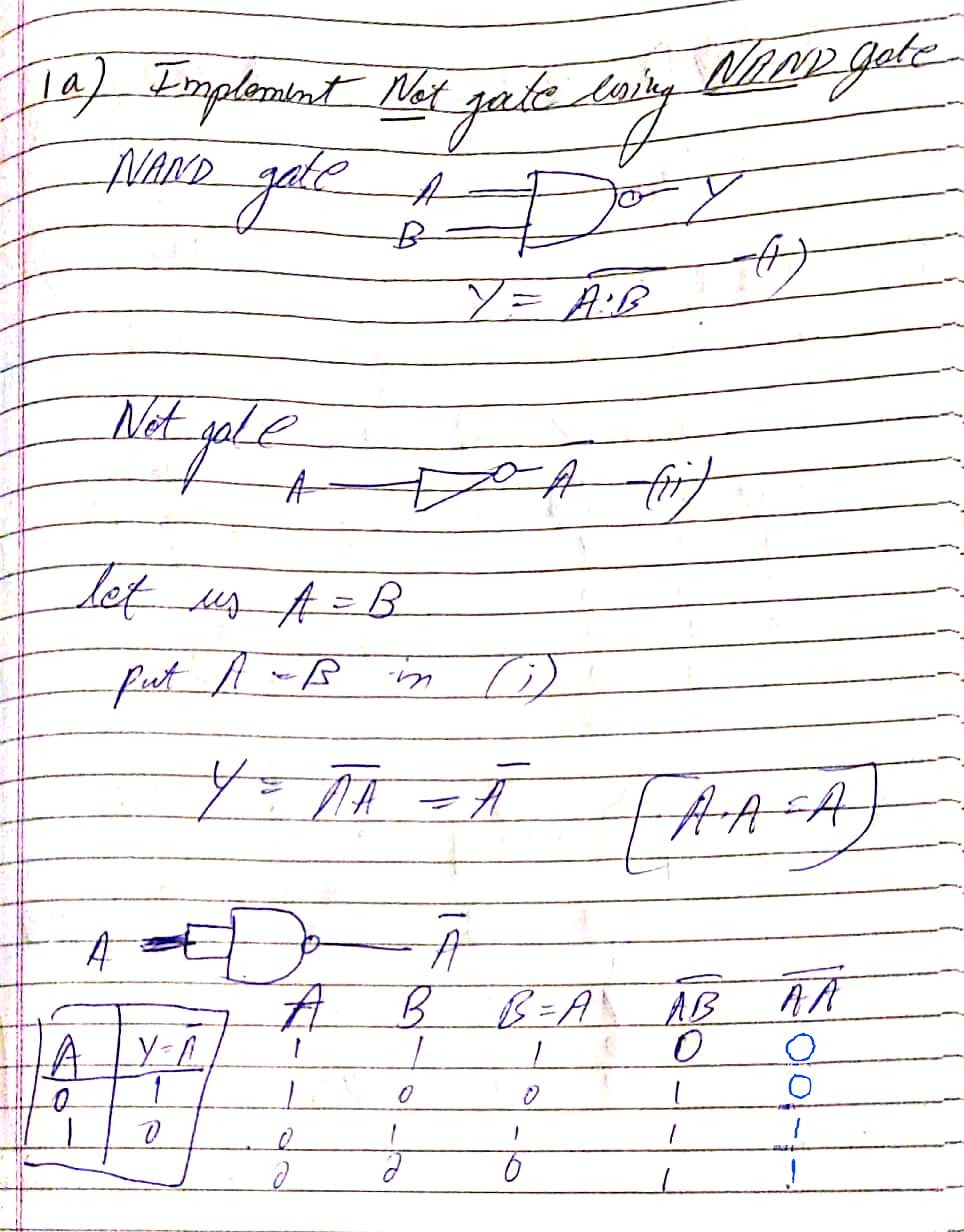 1a) Implement Not gate using NAND gate
NAND gate A B Y
Y = \overline{A·B} -(i)
Not gate
A \overline{A} -(ii)
let us A = B
put A = B in (i)
Y = \overline{AA} = \overline{A} [A·A = A]
A \overline{A}
A B B=A \overline{AB} \overline{AA}
A Y=\overline{A} 1 1 1 0 0
0 1 1 0 0 1 0
1 0 0 1 1 1 1
0 0 0 1 1